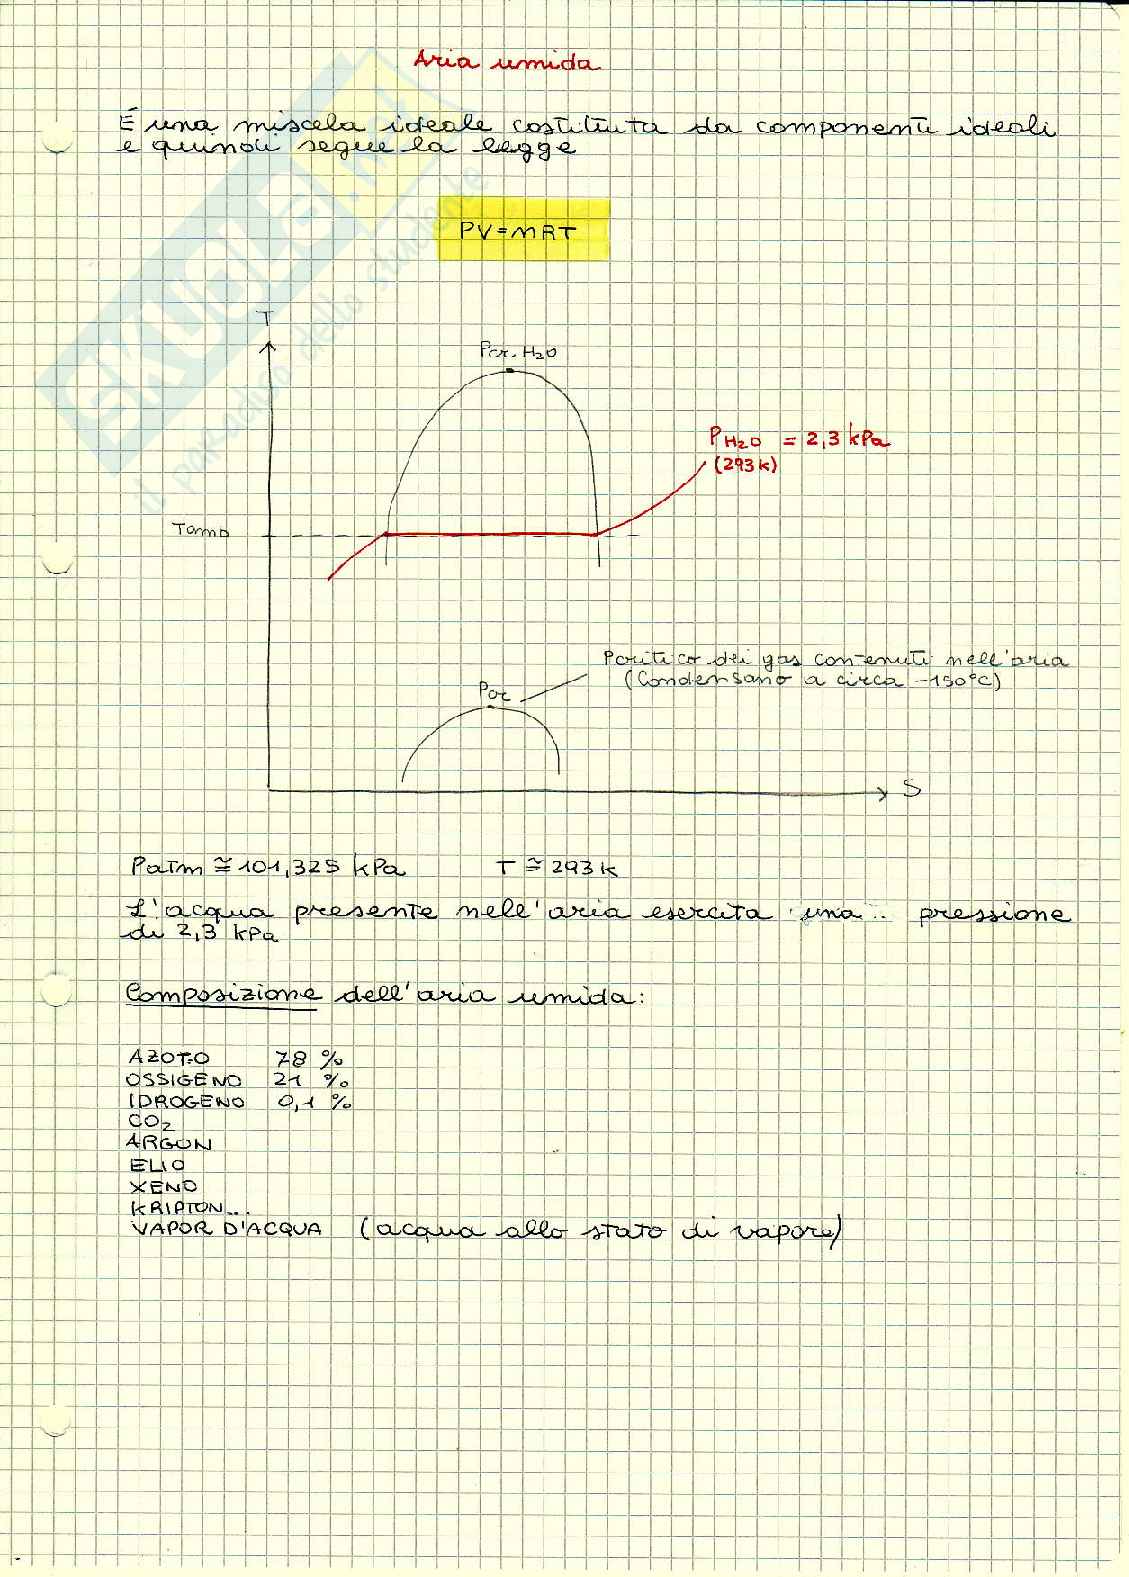 Aria umida
È una miscela ideale costituita da componenti ideali
e quindi segue la legge
PV=MRT
T
Pcr. H2O
PH2O = 2,3 kPa
(293 k)
Tamb
Pcritico dei gas contenuti nell'aria
(Condensano a circa -190°C)
Pcr
S
Patm ≅ 101,325 kPa T ≅ 293 k
L'acqua presente nell'aria esercita una pressione
di 2,3 kPa
Composizione dell'aria umida:
AZOTO 78 %
OSSIGENO 21 %
IDROGENO 0,1 %
CO2
ARGON
ELIO
XENO
KRIPTON...
VAPOR D'ACQUA (acqua allo stato di vapore)
SKUOLA.net
il paradiso dello studente